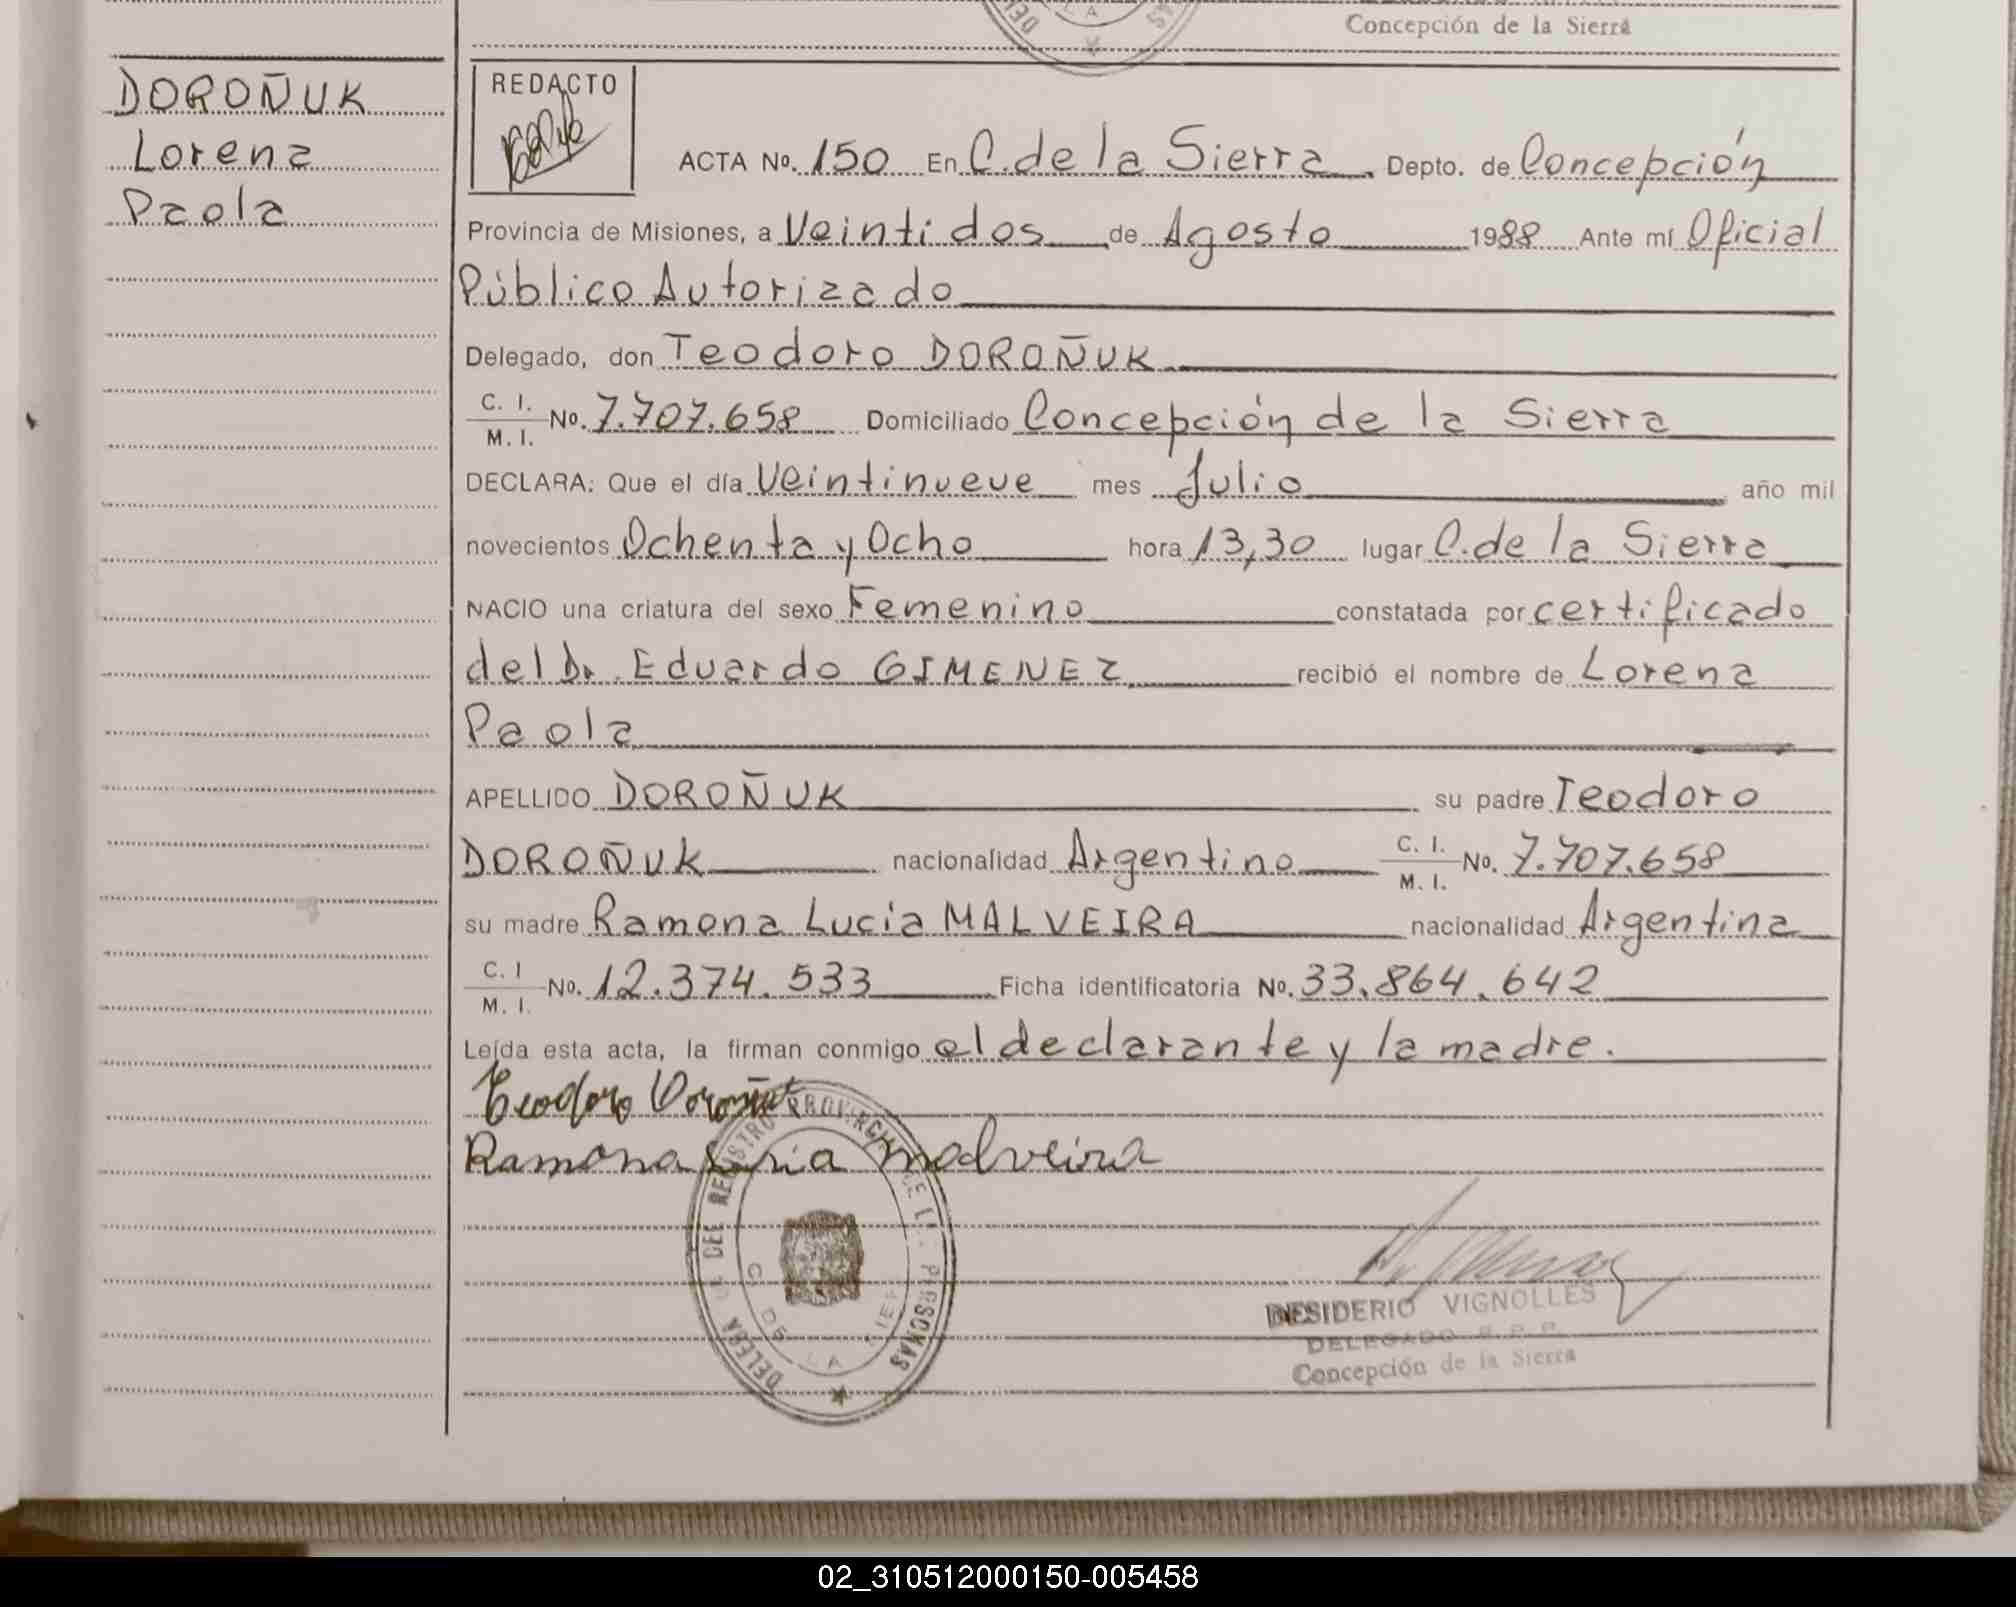 Concepción de la Sierra
DOROÑUK
Lorena
Paola
REDACTO
ACTA No. 150 En C. de la Sierra Depto. de Concepción
Provincia de Misiones, a Veintidos de Agosto 1988 Ante mí Oficial
Público Autorizado
Delegado, don Teodoro DOROÑUK
C. I. M. I. No. 7.707.658 Domiciliado Concepción de la Sierra
DECLARA: Que el día Veintinueve mes Julio año mil
novecientos Ochenta y Ocho hora 13,30 lugar C. de la Sierra
NACIO una criatura del sexo Femenino constatada por certificado
del Dr. Eduardo GIMENEZ recibió el nombre de Lorena
Paola
APELLIDO DOROÑUK su padre Teodoro
DOROÑUK nacionalidad Argentino C. I. M. I. No. 7.707.658
su madre Ramona Lucia MALVEIRA nacionalidad Argentina
C. I M. I. No. 12.374.533 Ficha identificatoria No. 33.864.642
Leída esta acta, la firman conmigo el declarante y la madre.
Teodoro Doroñuk
Ramona Lucia Malveira
DEL REGISTRO PROVINCIAL DE LAS PERSONAS
C. DE LA SIERRA
DESIDERIO VIGNOLLES
DELEGADO R. P. P.
Concepción de la Sierra
02_310512000150-005458